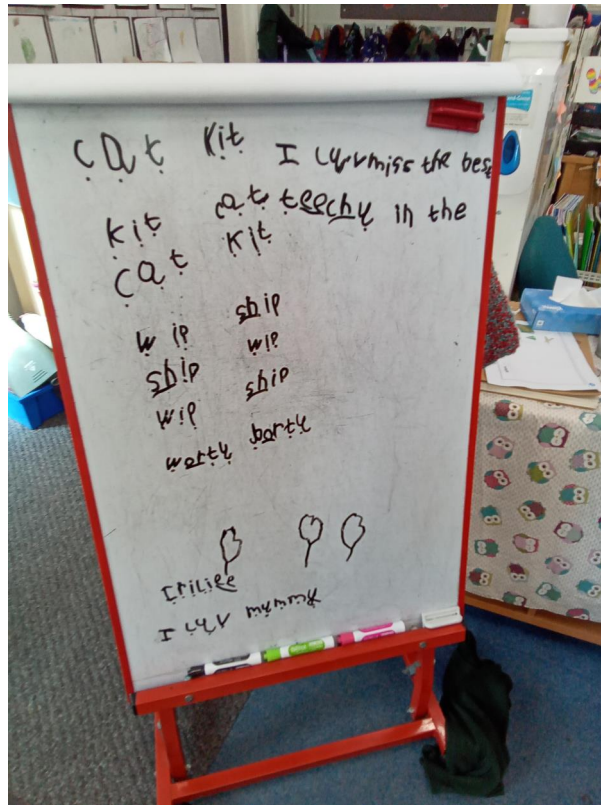 cat kit I luv miss the best
kit cat teechy in the
cat kit
wip ship
ship wip
wip ship
worty porty
I luv mummy